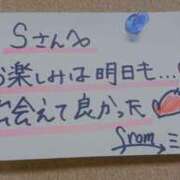 Sさんへ
お楽しみは明日も…♥
出会えて良かった♥
from ミ